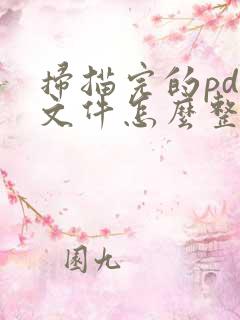 掃描完的pd
文件怎麼整
園九